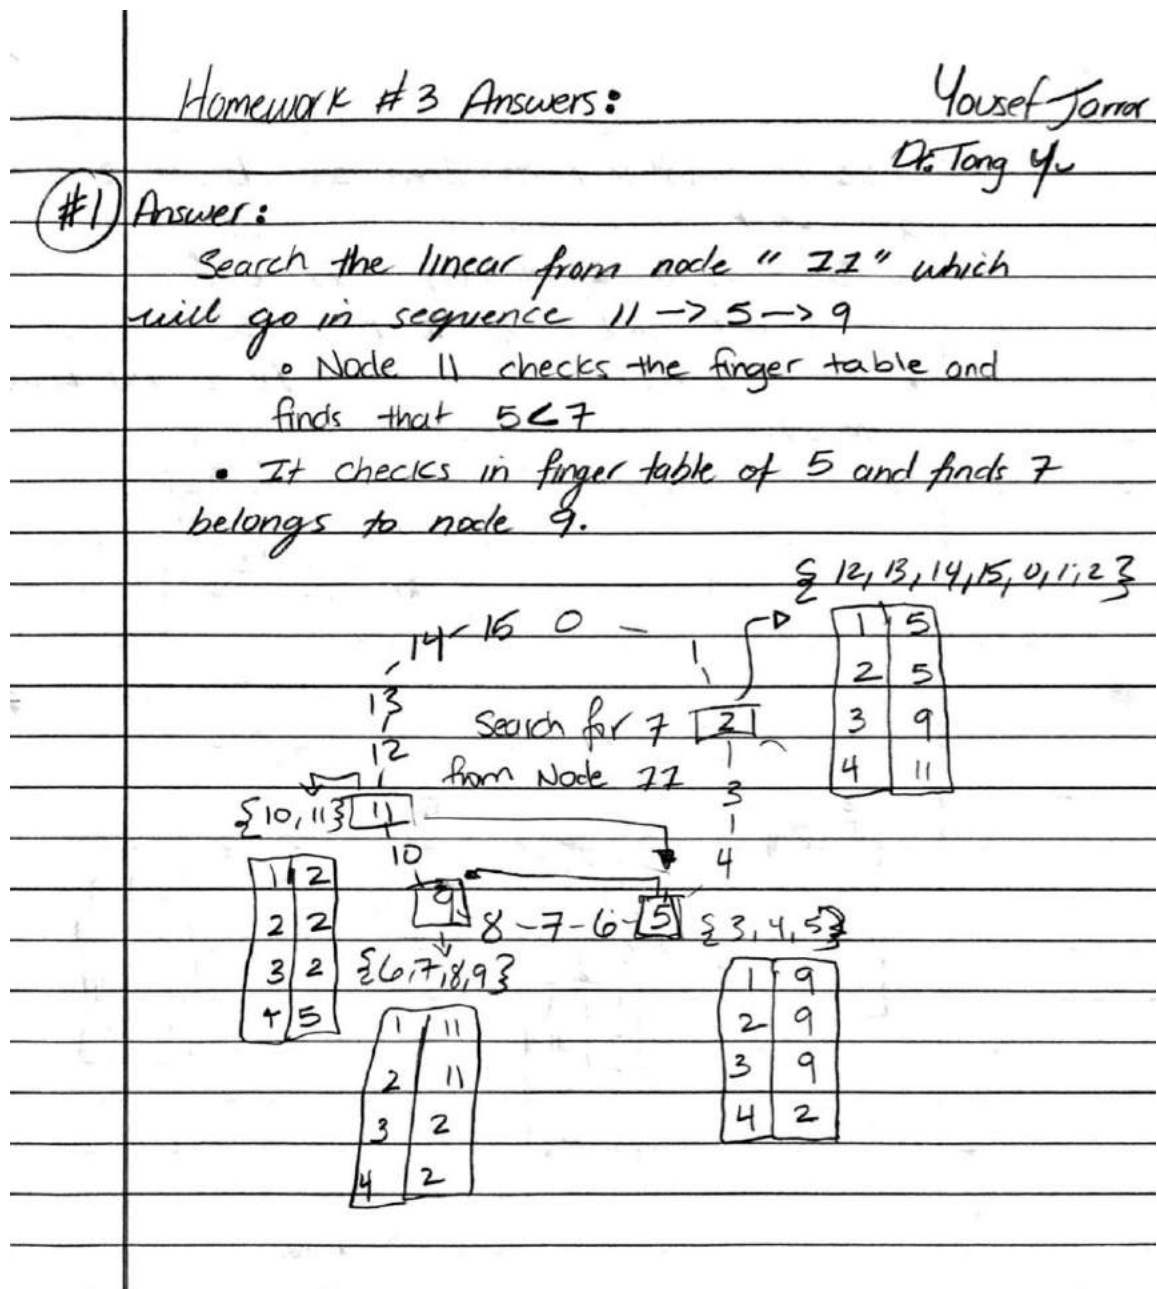 Homework #3 Answers:
Yousef Jarrar
Dr. Tong Yu
#1 Answer:
Search the linear from node " 11" which
will go in sequence 11 -> 5 -> 9
• Node 11 checks the finger table and
finds that 5<7
• It checks in finger table of 5 and finds 7
belongs to node 9.
{ 12, 13, 14, 15, 0, 1, 2 }
1 5
2 5
3 9
4 11
14 - 15 0 - 1
13
12
Search for 7 2
from Node 11
3
4
{10, 11} 11
10
9 8 - 7 - 6 - 5 { 3, 4, 5}
{6, 7, 8, 9}
1 2
2 2
3 2
4 5
1 9
2 9
3 9
4 2
1 11
2 11
3 2
4 2